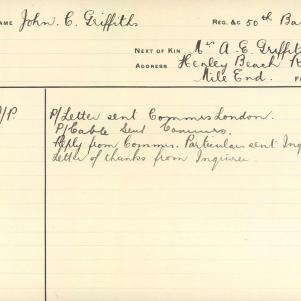 NAME John. C. Griffiths REG. &C 50th Ba
NEXT OF KIN Mrs A. E. Griffit
ADDRESS Henley Beach R
Mile End.
/P. P/Letter sent Commrs London.
P/Cable Sent Commrs.
Reply from Commrs. Particulars sent Inq
Letter of thanks from Inquirer